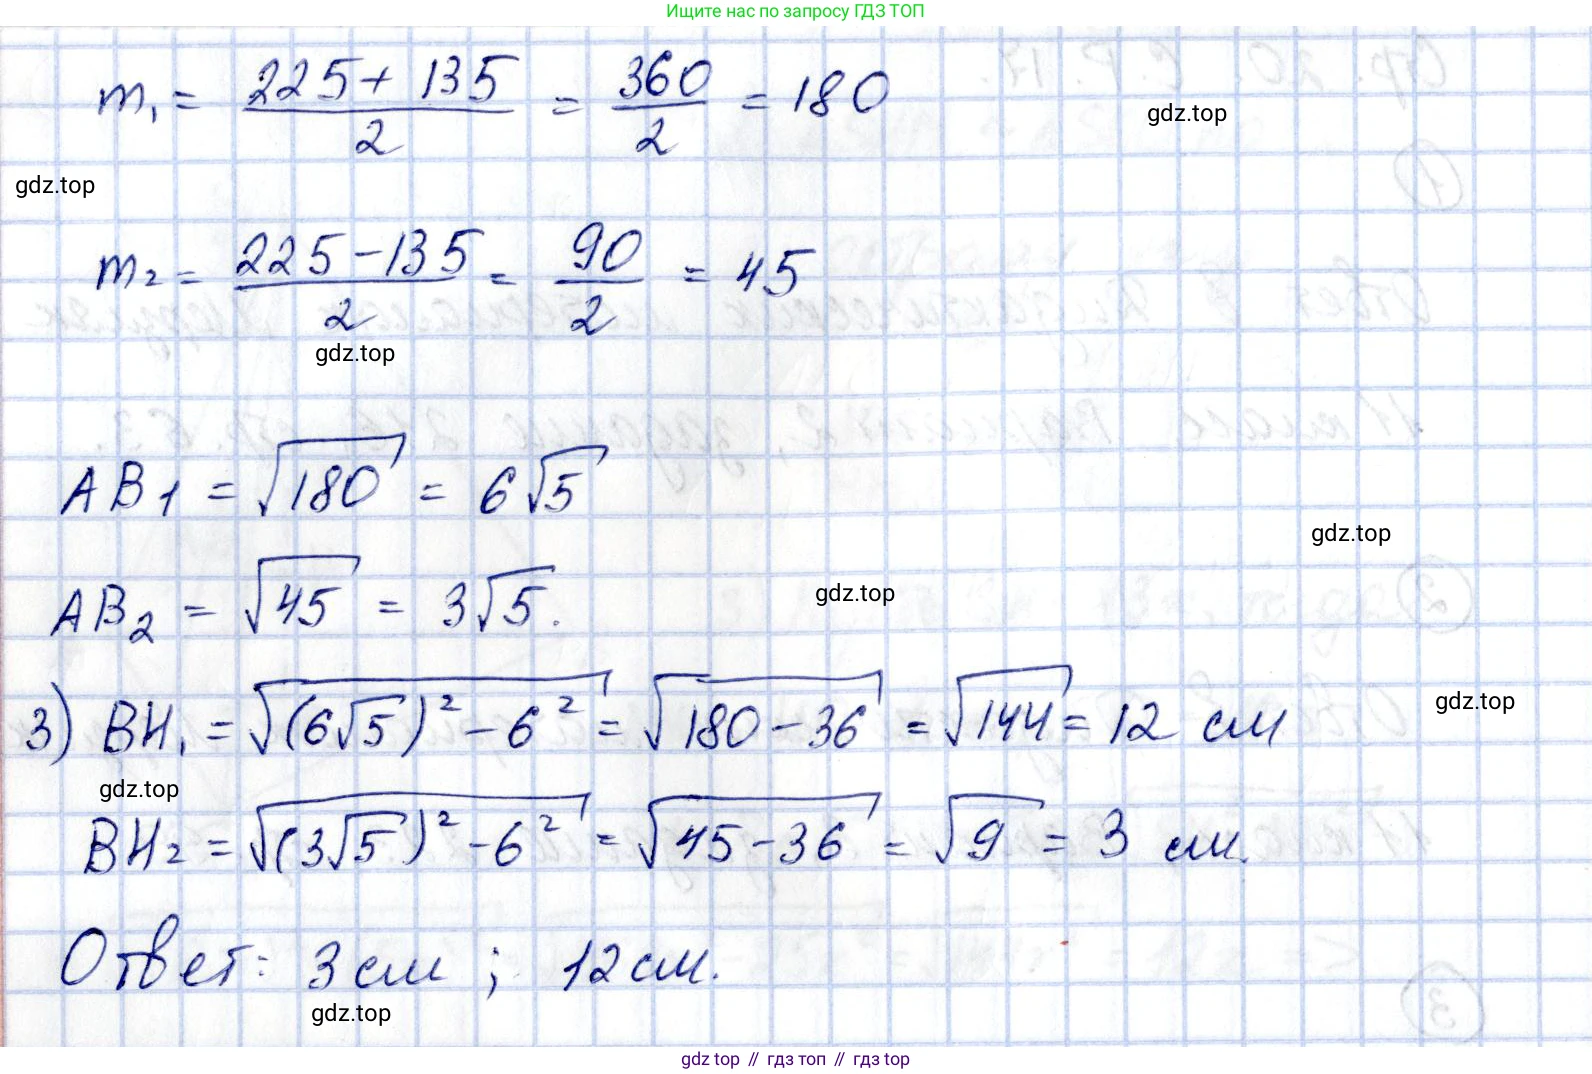 Ищите нас по запросу ГДЗ ТОП
m₁ = (225 + 135)/2 = 360/2 = 180
gdz.top
gdz.top
m₂ = (225 − 135)/2 = 90/2 = 45
gdz.top
AB₁ = √180 = 6√5
gdz.top
AB₂ = √45 = 3√5.
gdz.top
3) BH₁ = √((6√5)² − 6²) = √(180 − 36) = √144 = 12 см
gdz.top
gdz.top
BH₂ = √((3√5)² − 6²) = √(45 − 36) = √9 = 3 см.
Ответ: 3 см ; 12 см.
gdz.top
gdz top // гдз топ // гдз top